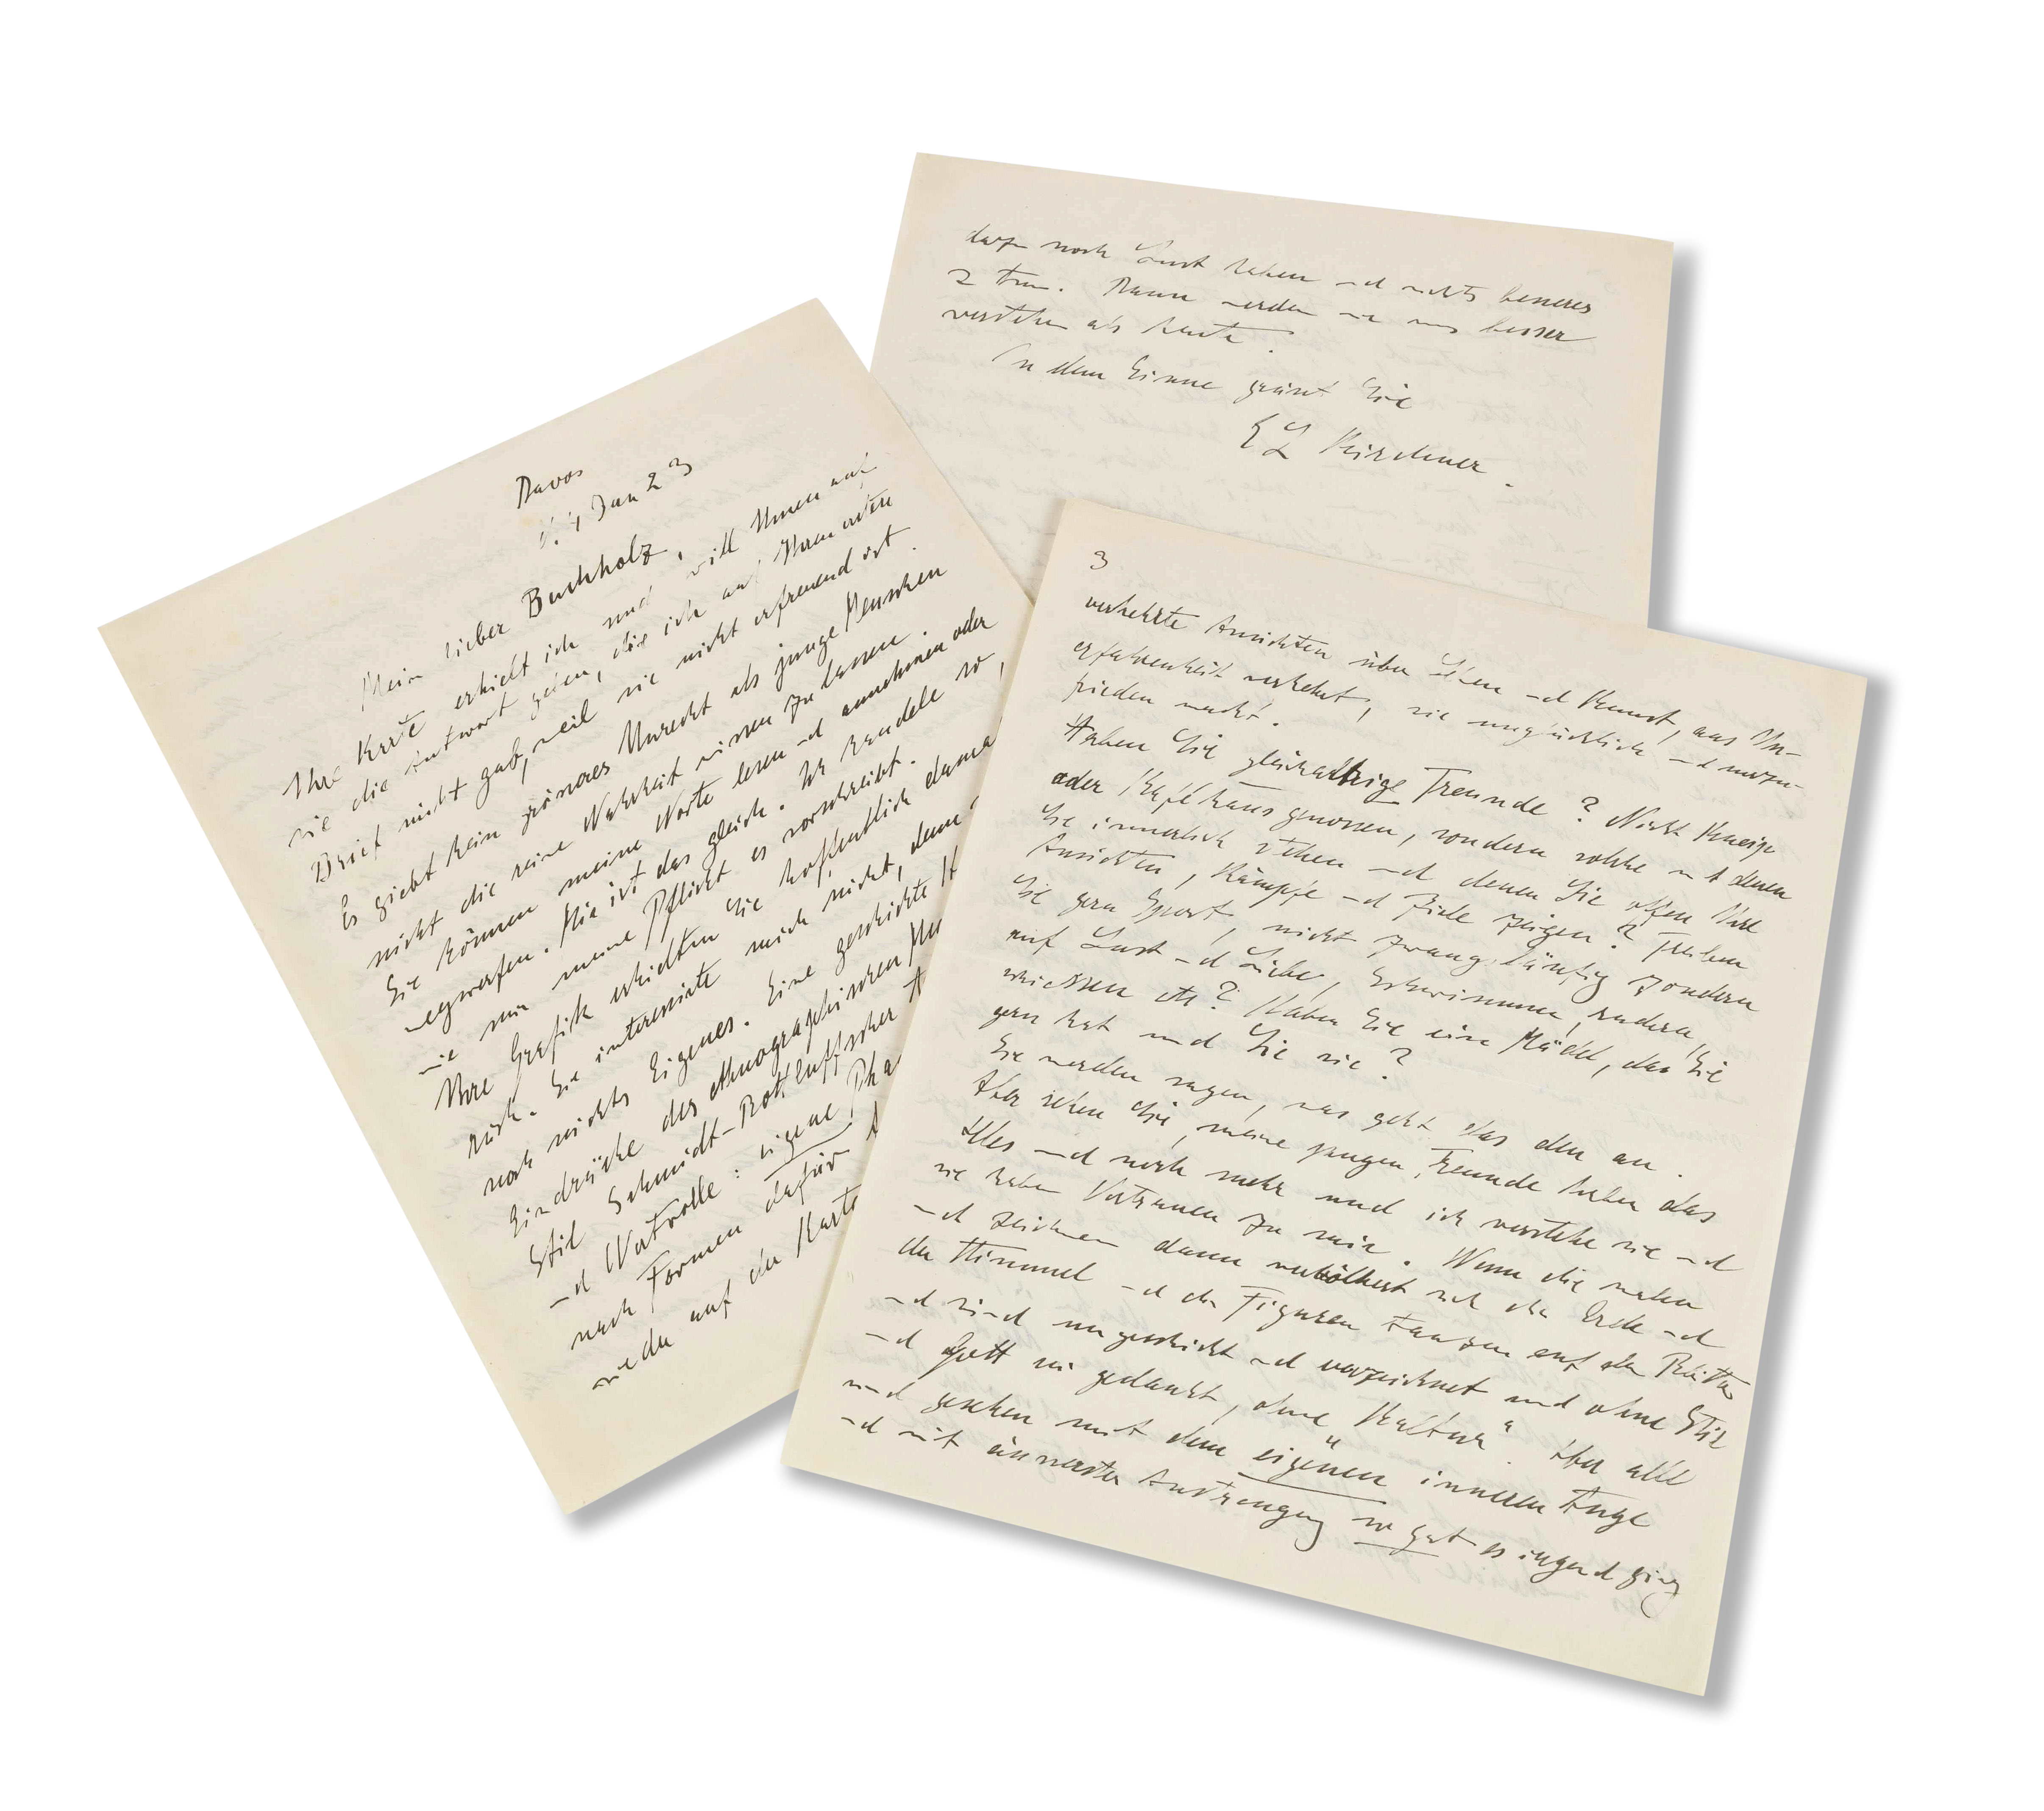 Davos
Jan 23
Mein lieber Buchholz,
Ihre Karte erhielt ich und will Ihnen auf
sie die Antwort geben, die ich auf Ihren ersten
Brief nicht gab, weil sie nicht erfreuend ist.
Es giebt kein grösseres Unrecht als junge Menschen
nicht die reine Wahrheit wissen zu lassen.
Sie können meine Worte lesen und annehmen oder
wegwerfen. Mir ist das gleich. Ich handele so,
wie mir meine Pflicht es vorschreibt.
Ihre Grafik erhielten Sie hoffentlich dama
rück. Sie interessierte mich nicht, denn
noch nichts Eigenes. Eine geschickte
Eindrücke des ethnographischen Mu
Stil Schmidt-Rottluffscher
und Wertvolle: eigene Pha
nach Formen dafür
wieder auf der Karte
darzu noch Lust haben und nichts besseres
z tun. Dann werden wir uns besser
verstehen als heute.
In dem Sinne grüsst Sie
E L Kirchner.
3
verkehrte Ansichten über Leben und Kunst, aus Un-
erfahrenheit verkehrt, sie unglücklich und unzu-
frieden macht.
Haben Sie gleichaltrige Freunde? Nicht Kneip
oder Kaféhausgenossen, sondern solche mit denen
Sie innerlich stehen und denen Sie offen Ihre
Ansichten, Kämpfe und Ziele zeigen? Treiben
Sie gern Sport, nicht zwangläufig sondern
auf Lust und Liebe, Schwimmen, rudern,
schiessen etc? Haben Sie eine Mädel, das Sie
gern hat und Sie sie?
Sie werden sagen, was geht das den an.
Aber sehen Sie, meine jungen Freunde haben das
Alles und noch mehr und ich verstehe sie und
sie haben Vertrauen zu mir. Wenn die malen
und zeichnen dann bevölkert sich die Erde und
der Himmel und die Figuren tanzen auf den Blättern
und sind ungeschickt und verzeichnet und ohne Stil
und Gott sei gedankt, ohne „Kultur“. Aber alle
sind gesehen mit dem eigenen inneren Auge
und mit äusserster Anstrengung so gut es irgend ging